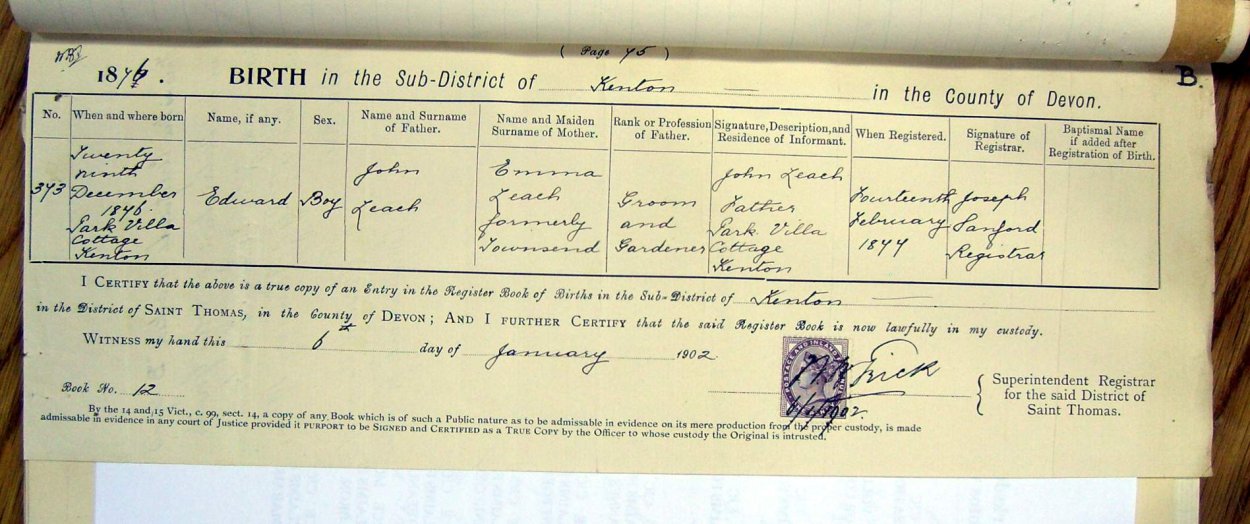 ( Page 75 )
B.
1876. BIRTH in the Sub-District of Kenton in the County of Devon.
No. When and where born Name, if any. Sex. Name and Surname of Father. Name and Maiden Surname of Mother. Rank or Profession of Father. Signature, Description, and Residence of Informant. When Registered. Signature of Registrar. Baptismal Name if added after Registration of Birth.
373
Twenty
ninth
December
1876.
Park Villa
Cottage
Kenton
Edward
Boy
John
Leach
Emma
Leach
formerly
Townsend
Groom
and
Gardener
John Leach
Father
Park Villa
Cottage
Kenton
Fourteenth
February
1877
Joseph
Sanford
Registrar
I CERTIFY that the above is a true copy of an Entry in the Register Book of Births in the Sub-District of Kenton
in the District of SAINT THOMAS, in the County of DEVON; AND I FURTHER CERTIFY that the said Register Book is now lawfully in my custody.
WITNESS my hand this 6th day of January 1902.
POSTAGE AND INLAND REVENUE
6/1/1902.
Superintendent Registrar
for the said District of
Saint Thomas.
Book No. 12
By the 14 and 15 Vict., c. 99, sect. 14, a copy of any Book which is of such a Public nature as to be admissible in evidence on its mere production from the proper custody, is made
admissable in evidence in any court of Justice provided it PURPORT to be SIGNED and CERTIFIED as a TRUE COPY by the Officer to whose custody the Original is intrusted.